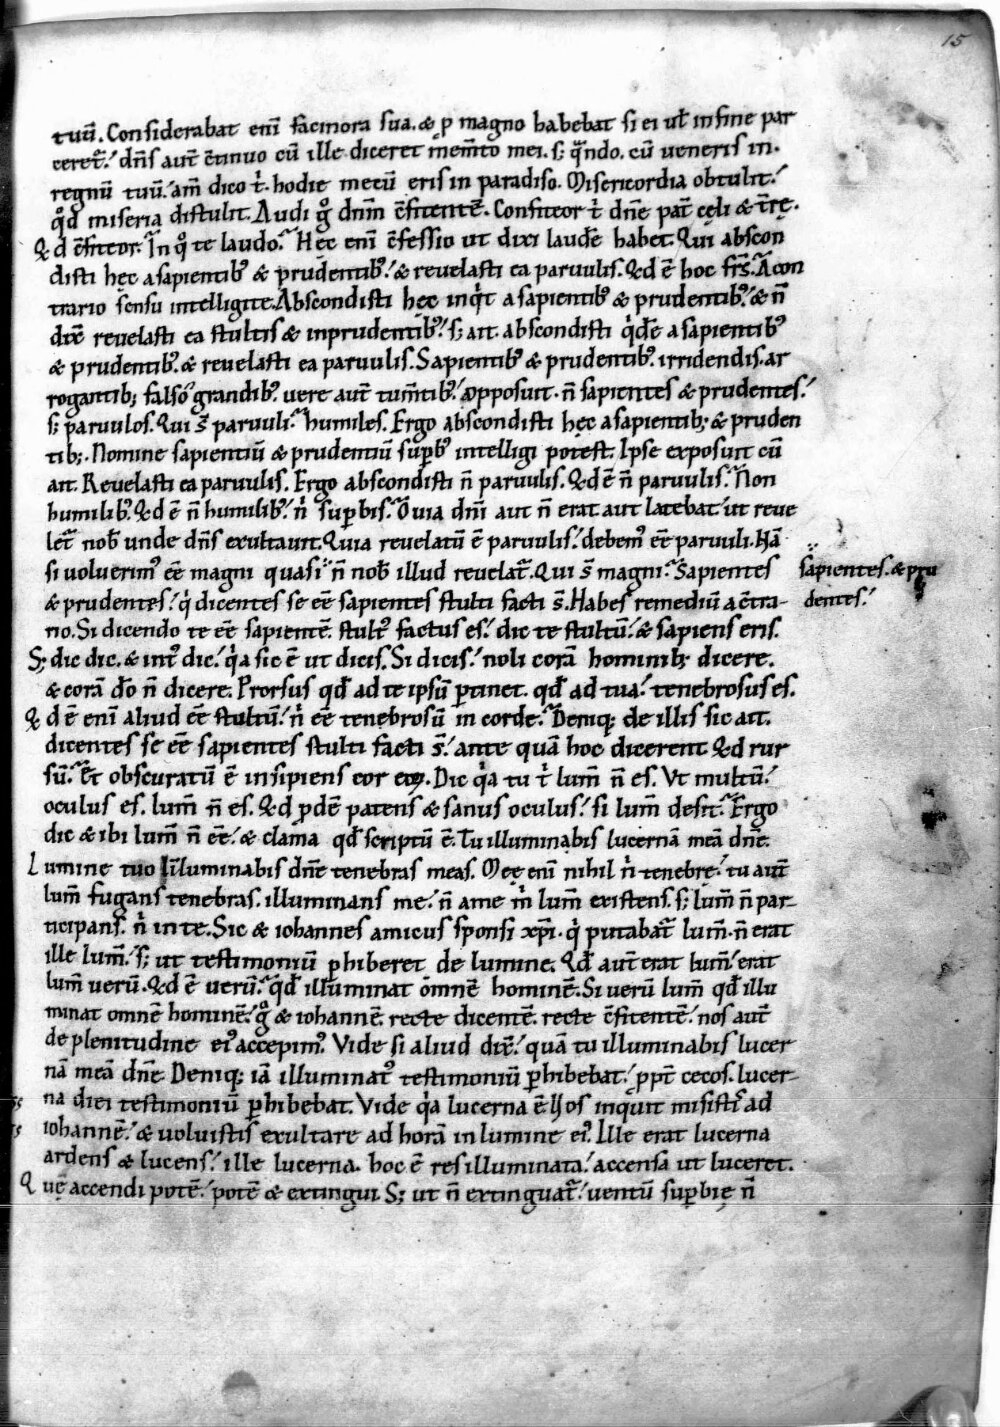 15
tuū. Considerabat enī facinora sua. & p magno habebat si ei ut̄ in fine par
ceret̄. dn̄s aut̄ c̄tinuo cū ille diceret mem̄to mei. s; q̄ndo. cū ueneris in.
regnū tuū. am̄ dico t̄. hodie mecū eris in paradiso. Misericordia obtulit.
qd̄ miseria distulit. Audi gͦ dnm̄ c̄fitentē. Confiteor t̄ dn̄e pat̄ cęli & t̄rę.
Qd c̄fiteor. In qͦ te laudo. Hęc enī c̄fessio ut dixi laudē habet. Qui abscon
disti hęc a sapientibꝰ & prudentibꝰ. & reuelasti ea paruulis. Qd ē hoc frs̄. A con
trario sensu intelligite. Abscondisti hęc inqͥt a sapientibꝰ & prudentibꝰ. & n̄
dix̄ reuelasti ea stultis & inprudentibꝰ. s; ait. abscondisti qͥdē a sapientibꝰ
& prudentibꝰ. & reuelasti ea paruulis. Sapientibꝰ & prudentibꝰ. irridendis. ar
rogantib; falsͦ grandibꝰ. uere aut̄ tum̄tibꝰ. opposuit. n̄ sapientes & prudentes.
s; paruulos. Qui s̄ paruuli. humiles. Ergo abscondisti hęc a sapientib; & pruden
tib;. Nomine sapientiū & prudentiū sup̄bꝰ intelligi potest. Ipse exposuit cū
ait. Reuelasti ea paruulis. Ergo abscondisti n̄ paruulis. Qd ē n̄ paruulis. Non
humilibꝰ. Qd ē n̄ humilibꝰ. nͥ sup̄bis. O uia dn̄i aut n̄ erat aut latebat. ut reue
let̄ nob̄ unde dn̄s exultauit. Quia reuelatū ē paruulis. debemꝰ ēē paruuli. Nā
si uoluerimꝰ ēē magni quasi n̄ nob̄ illud reuelat̄. Qui s̄ magni. Sapientes
sapientes. & pru
dentes.
& prudentes. qͥ dicentes se ēē sapientes stulti facti s̄. Habes remediū a c̄tra-
rio. Si dicendo te ēē sapientē. stultꝰ factus es. dic te stultū. & sapiens eris.
S; dic dic. & intꝰ dic. qͥa sic ē ut dicis. Si dicis. noli corā hominib; dicere.
& corā dō n̄ dicere. Prorsus qd̄ ad te ipsū ptinet. qd̄ ad tua. tenebrosus es.
Qd ē enī aliud ēē stultū. nͥ ēē tenebrosū in corde. Deniq; de illis sic ait.
dicentes se ēē sapientes stulti facti s̄. ante quā hoc dicerent Qd rur
sū. Et obscuratū ē insipiens cor eoꝝ. Dic qͥa tu t̄ lum̄ n̄ es. Vt multū.
oculus es. lum̄ n̄ es. Qd pdē patens & sanus oculus. si lum̄ desit. Ergo
dic & ibi lum̄ n̄ ēē. & clama qd̄ scriptū ē. Tu illuminabis lucernā meā dn̄e.
Lumine tuo illuminabis dn̄e tenebras meas. Meę enī nihil nͥ tenebrę. tu aut̄
lum̄ fugans tenebras. illuminans me. n̄ a me mͥ lum̄ existens. s; lum̄ n̄ par-
ticipans. nͥ in te. Sic & iohannes amicus sponsi xp̄i. qͥ putabat̄ lum̄. n̄ erat
ille lum̄. s; ut testimoniū phiberet de lumine. Qd̄ aut̄ erat lum̄. erat
lum̄ uerū. Qd ē uerū. qd̄ illuminat om̄nē hominē. Si uerū lum̄ qd̄ illu
minat omnē hominē. gͦ & iohannē. recte dicentē. recte c̄fitentē. nos aut̄
de plenitudine eiꝰ accepimꝰ. Vide si aliud dix̄. quā tu illuminabis lucer
nā meā dn̄e. Deniq; iā illuminatꝰ testimoniū phibebat. ppt̄ cecos. lucer-
na diei testimoniū phibebat. Vide qͥa lucerna ē. Uos inquit misistis ad
iohannē. & uoluistis exultare ad horā in lumine eiꝰ. Ille erat lucerna
ardens & lucens. ille lucerna. hoc ē res illuminata. accensa ut luceret.
Quę accendi potē. potē & extingui S; ut n̄ extinguat̄. uentū sup̄bię n̄